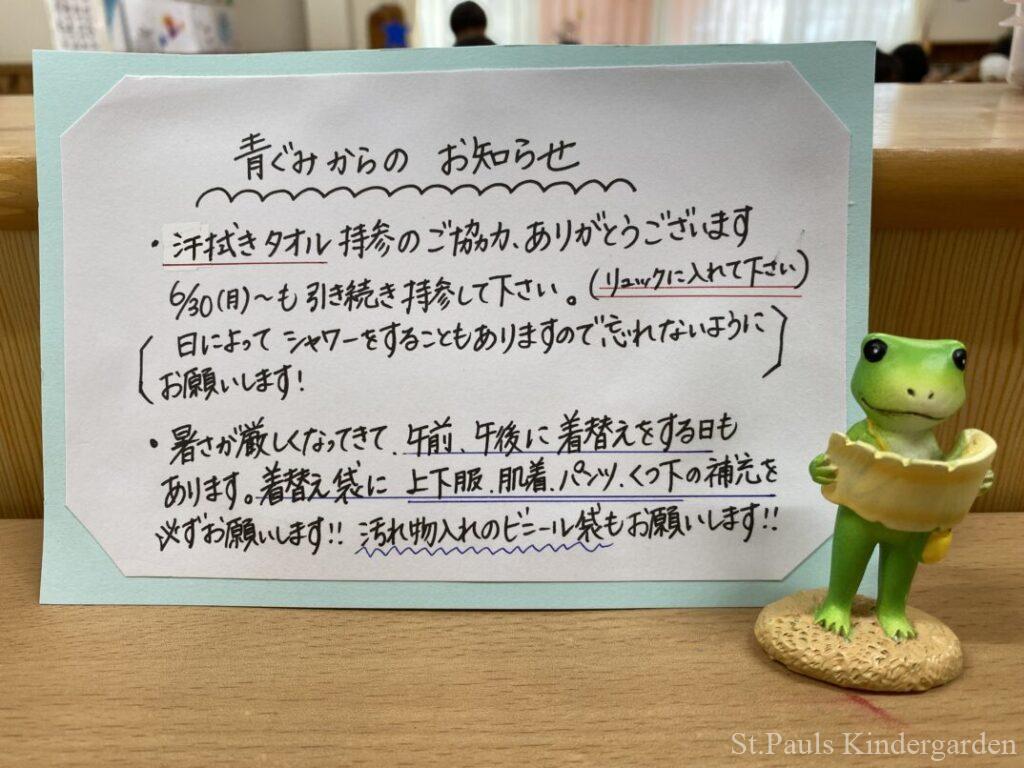 青ぐみからの お知らせ
・汗拭きタオル持参のご協力、ありがとうございます
6/30(月)~も引き続き持参して下さい。(リュックに入れて下さい)
(日によってシャワーをすることもありますので忘れないように
お願いします!)
・暑さが厳しくなってきて、午前、午後に着替えをする日も
あります。着替え袋に上下服、肌着、パンツ、くつ下の補充を
必ずお願いします!! 汚れ物入れのビニール袋もお願いします!!
St.Pauls Kindergarden